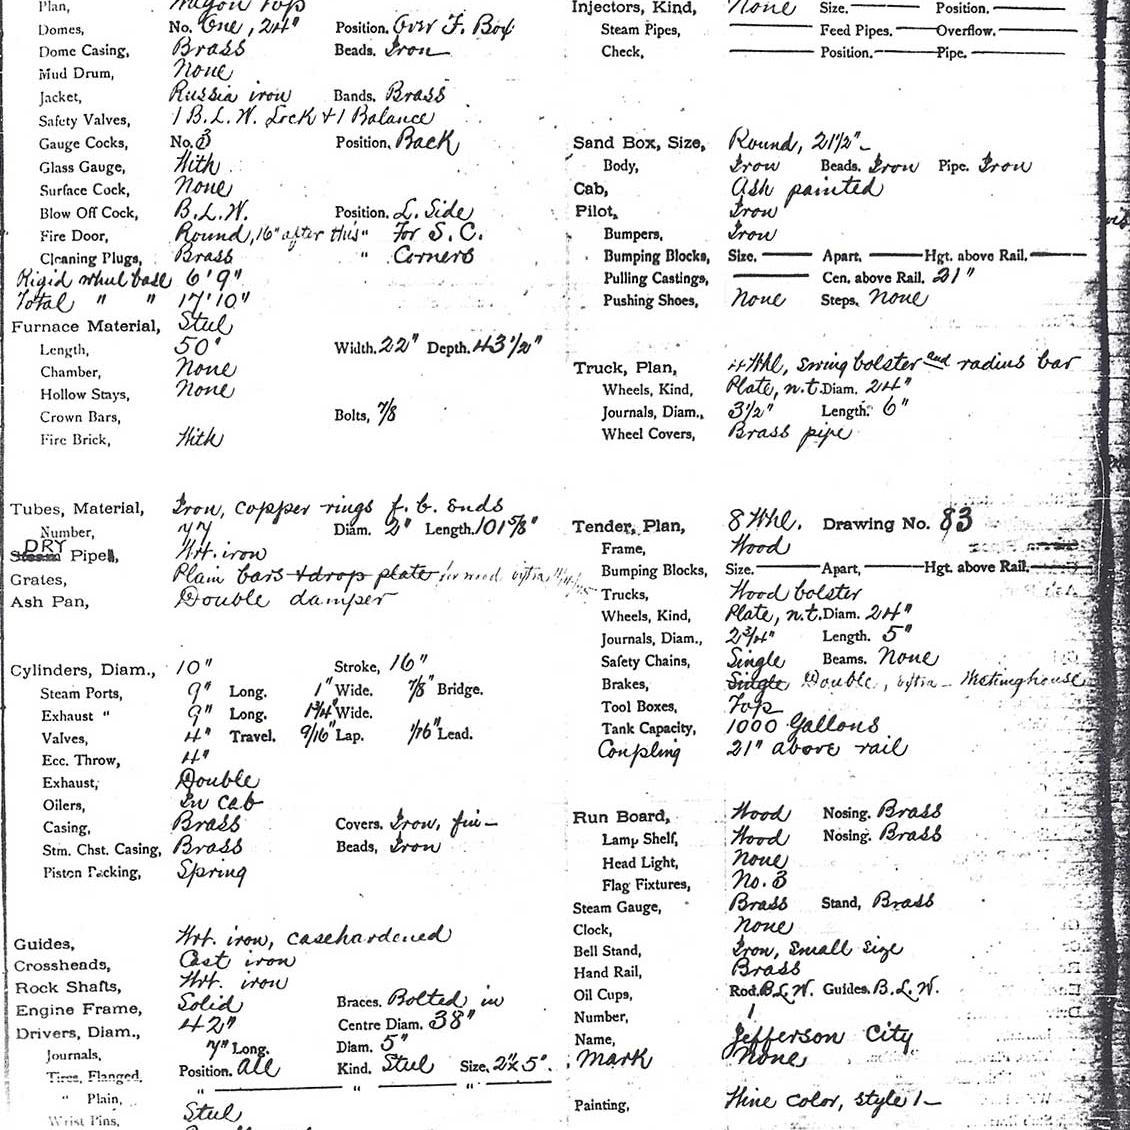 Plan, Wagon top
Domes, No. One, 24" Position. Over F. Box
Dome Casing, Brass Beads. Iron
Mud Drum, None
Jacket, Russia iron Bands. Brass
Safety Valves, 1 B.L.W. Lock + 1 Balance
Gauge Cocks, No. 3 Position. Back
Glass Gauge, With
Surface Cock, None
Blow Off Cock, B.L.W. Position. L. Side
Fire Door, Round, 16" after this " For S.C.
Cleaning Plugs, Brass " Corners
Rigid wheel base 6' 9"
Total " " 17' 10"
Furnace Material, Steel
Length, 50" Width. 22" Depth. 43 1/2"
Chamber, None
Hollow Stays, None
Crown Bars, Bolts, 7/8
Fire Brick, With
Tubes, Material, Iron, copper rings f. b. ends
Number, 77 Diam. 2" Length. 101 5/8"
DRY
Steam Pipes, Wrt. iron
Grates, Plain bars + drop plate for wood extra
Ash Pan, Double damper
Cylinders, Diam., 10" Stroke, 16"
Steam Ports, 9" Long. 1" Wide. 7/8" Bridge.
Exhaust " 9" Long. 1 3/4" Wide.
Valves, 4" Travel. 9/16" Lap. 1/16" Lead.
Ecc. Throw, 4"
Exhaust, Double
Oilers, In cab
Casing, Brass Covers. Iron, fin—
Stm. Chst. Casing, Brass Beads, Iron
Piston Packing, Spring
Guides, Wrt. iron, casehardened
Crossheads, Cast iron
Rock Shafts, Wrt. iron
Engine Frame, Solid Braces. Bolted in
Drivers, Diam., 42" Centre Diam. 38"
Journals, 7" Long. Diam. 5"
Tires, Flanged. Position. all Kind. Steel Size. 2" x 5".
" Plain, " " "
Wrist Pins, Steel
Injectors, Kind, None Size. Position.
Steam Pipes, Feed Pipes. Overflow.
Check, Position. Pipe.
Sand Box, Size, Round, 21 1/2"
Body, Iron Beads. Iron Pipe. Iron
Cab, Ash painted
Pilot, Iron
Bumpers, Iron
Bumping Blocks, Size. Apart. Hgt. above Rail.
Pulling Castings, Cen. above Rail. 21"
Pushing Shoes, None Steps. None
Truck, Plan, 4 Whl, swing bolster and radius bar
Wheels, Kind, Plate, n.t. Diam. 24"
Journals, Diam., 3 1/2" Length. 6"
Wheel Covers, Brass pipe
Tender, Plan, 8 Whl. Drawing No. 83
Frame, Wood
Bumping Blocks, Size. Apart, Hgt. above Rail.
Trucks, Wood bolster
Wheels, Kind, Plate, n.t. Diam. 24"
Journals, Diam., 2 3/4" Length. 5"
Safety Chains, Single Beams. None
Brakes, Single Double, extra - Westinghouse
Tool Boxes, Top
Tank Capacity, 1000 Gallons
Coupling 21" above rail
Run Board, Wood Nosing. Brass
Lamp Shelf, Wood Nosing. Brass
Head Light, None
Flag Fixtures, No. 3
Steam Gauge, Brass Stand, Brass
Clock, None
Bell Stand, Iron, small size
Hand Rail, Brass
Oil Cups, Rod. B.L.W. Guides. B.L.W.
Number, 1
Name, Jefferson City
Mark None
Painting, Wine color, style 1—